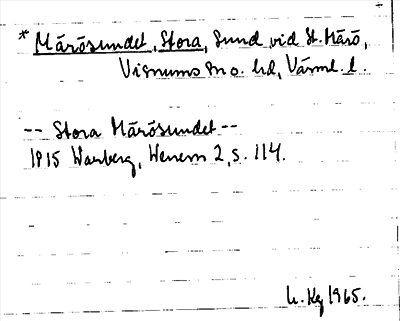 * Märösundet, Stora, Sund vid St. Märö,
Visnums sn o. hd, Värml. l.
-- Stora Märösundet --
1915 Warberg, Wenern 2, s. 114.
1965.